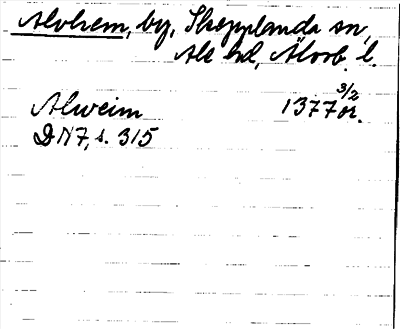 Alvhem, by, Skepplanda sn,
Ale hd, Älvsb. l.
Alweim 1377 3/2 or.
DN 7, s. 315